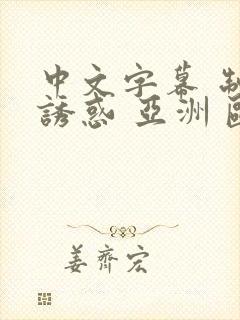 中文字幕 制
誘惑 亞洲
姜齊宏